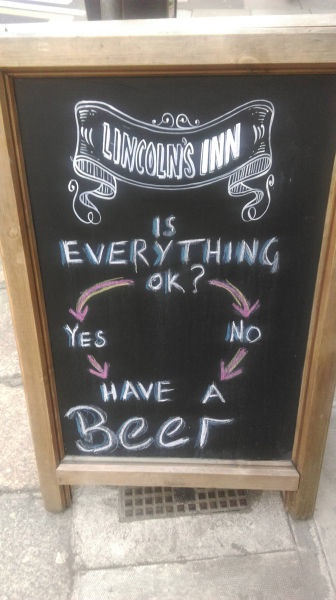 LINCOLN'S INN
IS
EVERYTHING
OK?
YES NO
HAVE A
Beer